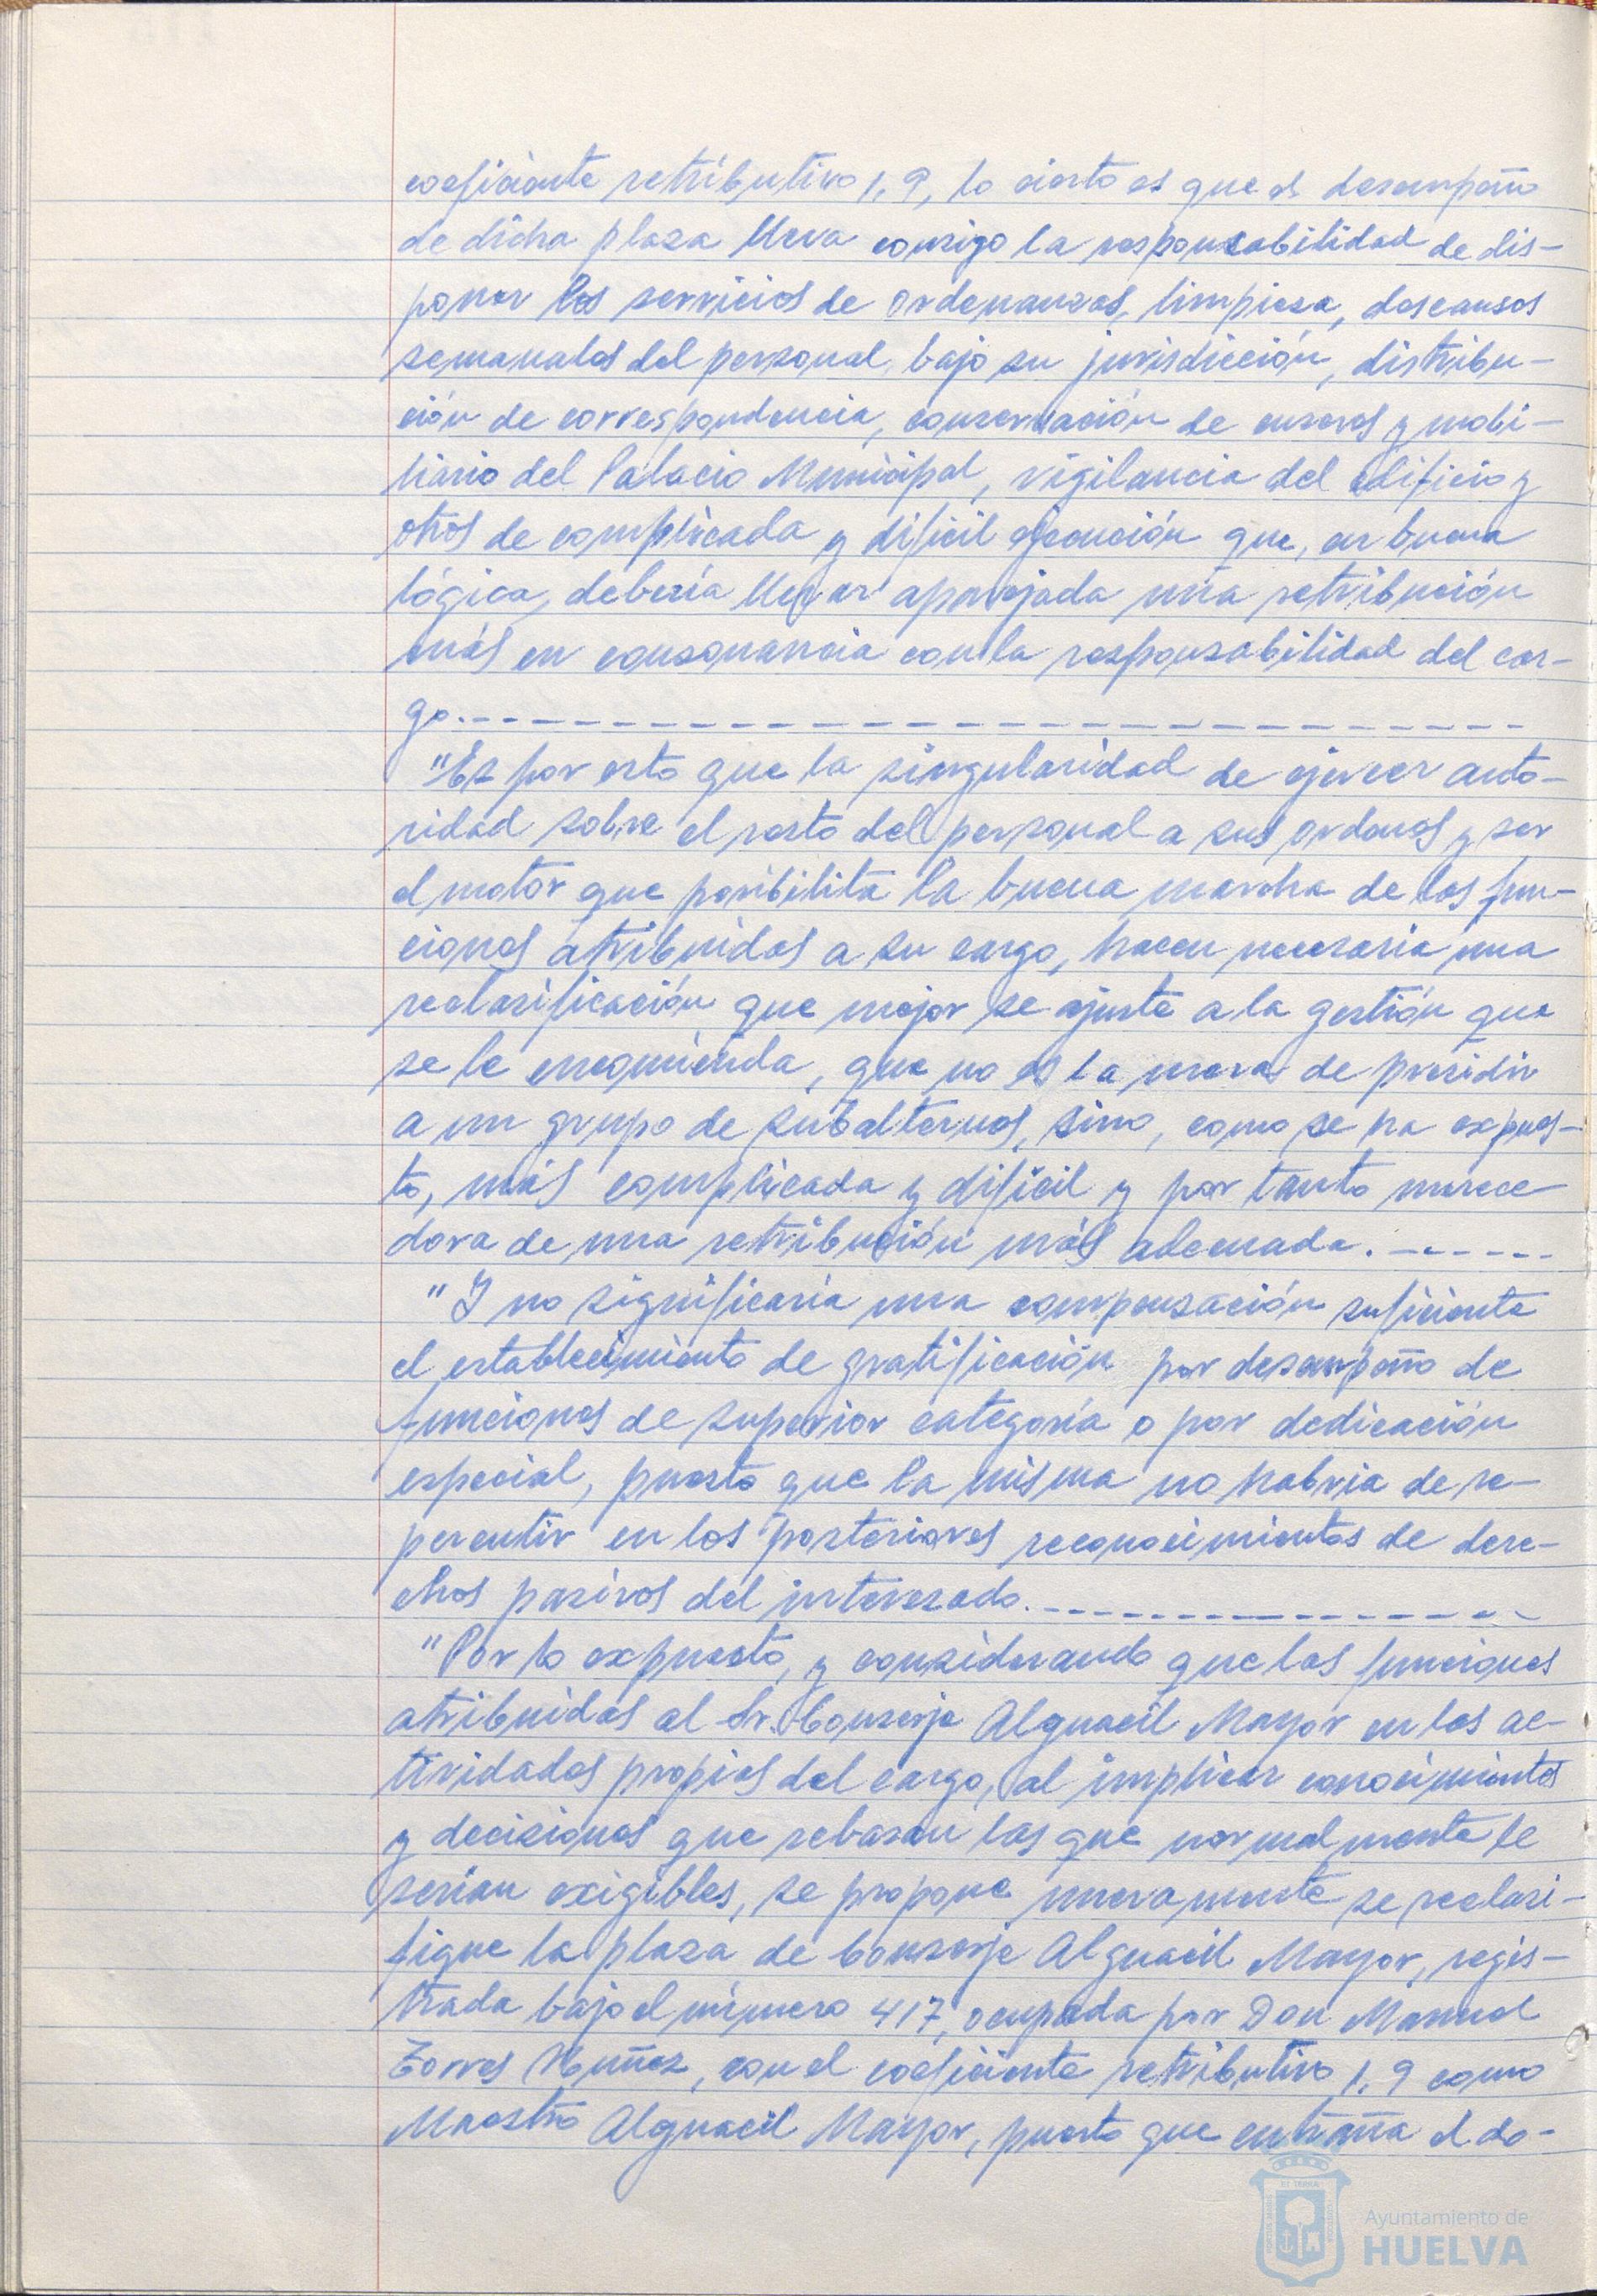 coeficiente retributivo 1,9, lo cierto es que el desempeño
de dicha plaza lleva consigo la responsabilidad de dis-
poner los servicios de ordenanzas, limpieza, descansos
semanales del personal bajo su jurisdicción, distribu-
ción de correspondencia, conservación de enseres y mobi-
liario del Palacio Municipal, vigilancia del edificio y
otros de complicada y difícil ejecución que, en buena
lógica, debería llevar aparejada una retribución
más en consonancia con la responsabilidad del car-
go.
"Es por esto que la singularidad de ejercer auto-
ridad sobre el resto del personal a sus ordenes y ser
el motor que posibilita la buena marcha de las fun-
ciones atribuidas a su cargo, hacen necesaria una
reclasificación que mejor se ajuste a la gestión que
se le encomienda, que no es la mera de presidir
a un grupo de subalternos, sino, como se ha expues-
to, más complicada y difícil y por tanto merece-
dora de una retribución más adecuada.
"Y no significaría una compensación suficiente
el establecimiento de gratificación por desempeño de
funciones de superior categoría o por dedicación
especial, puesto que la misma no habría de re-
percutir en los posteriores reconocimientos de dere-
chos pasivos del interesado.
"Por lo expuesto, y considerando que las funciones
atribuidas al Sr. Conserje Alguacil Mayor en las ac-
tividades propias del cargo, al implicar conocimientos
y decisiones que rebasan las que normalmente le
serían exigibles, se propone nuevamente se reclasi-
fique la plaza de Conserje Alguacil Mayor, regis-
trada bajo el número 417, ocupada por Don Manuel
Torres Núñez, con el coeficiente retributivo 1,9 como
Maestro Alguacil Mayor, puesto que entraña el do-
Ayuntamiento de
HUELVA